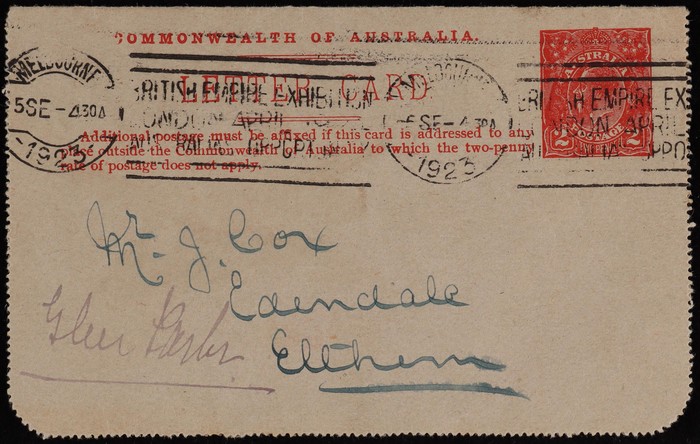 COMMONWEALTH OF AUSTRALIA.
LETTER CARD
Additional postage must be affixed if this card is addressed to any
place outside the Commonwealth of Australia to which the two-penny
rate of postage does not apply.
AUSTRALIA
2
MELBOURNE
5SE-430A
-1923-
BRITISH EMPIRE EXHIBITION
LONDON APRIL
MELBOURNE
SE-4
1923
BRITISH EMPIRE EX
LONDON APRIL
Mr. J. Cox
Edendale
Eltham
Glen Park